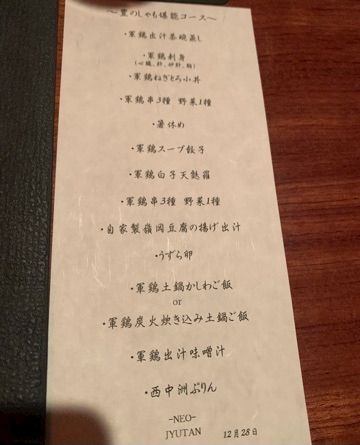 〜豊のしゃも堪能コース〜
・軍鶏出汁茶碗蒸し
・軍鶏刺身
(心臓、肝、砂肝、胸)
・軍鶏ねぎとろ小丼
・軍鶏串3種 野菜1種
・箸休め
・軍鶏スープ餃子
・軍鶏白子天麩羅
・軍鶏串3種 野菜1種
・自家製嶺岡豆腐の揚げ出汁
・うずら卵
・軍鶏土鍋かしわご飯
or
・軍鶏炭火炊き込み土鍋ご飯
・軍鶏出汁味噌汁
・西中洲ぷりん
-NEO-
JYUTAN
12月28日